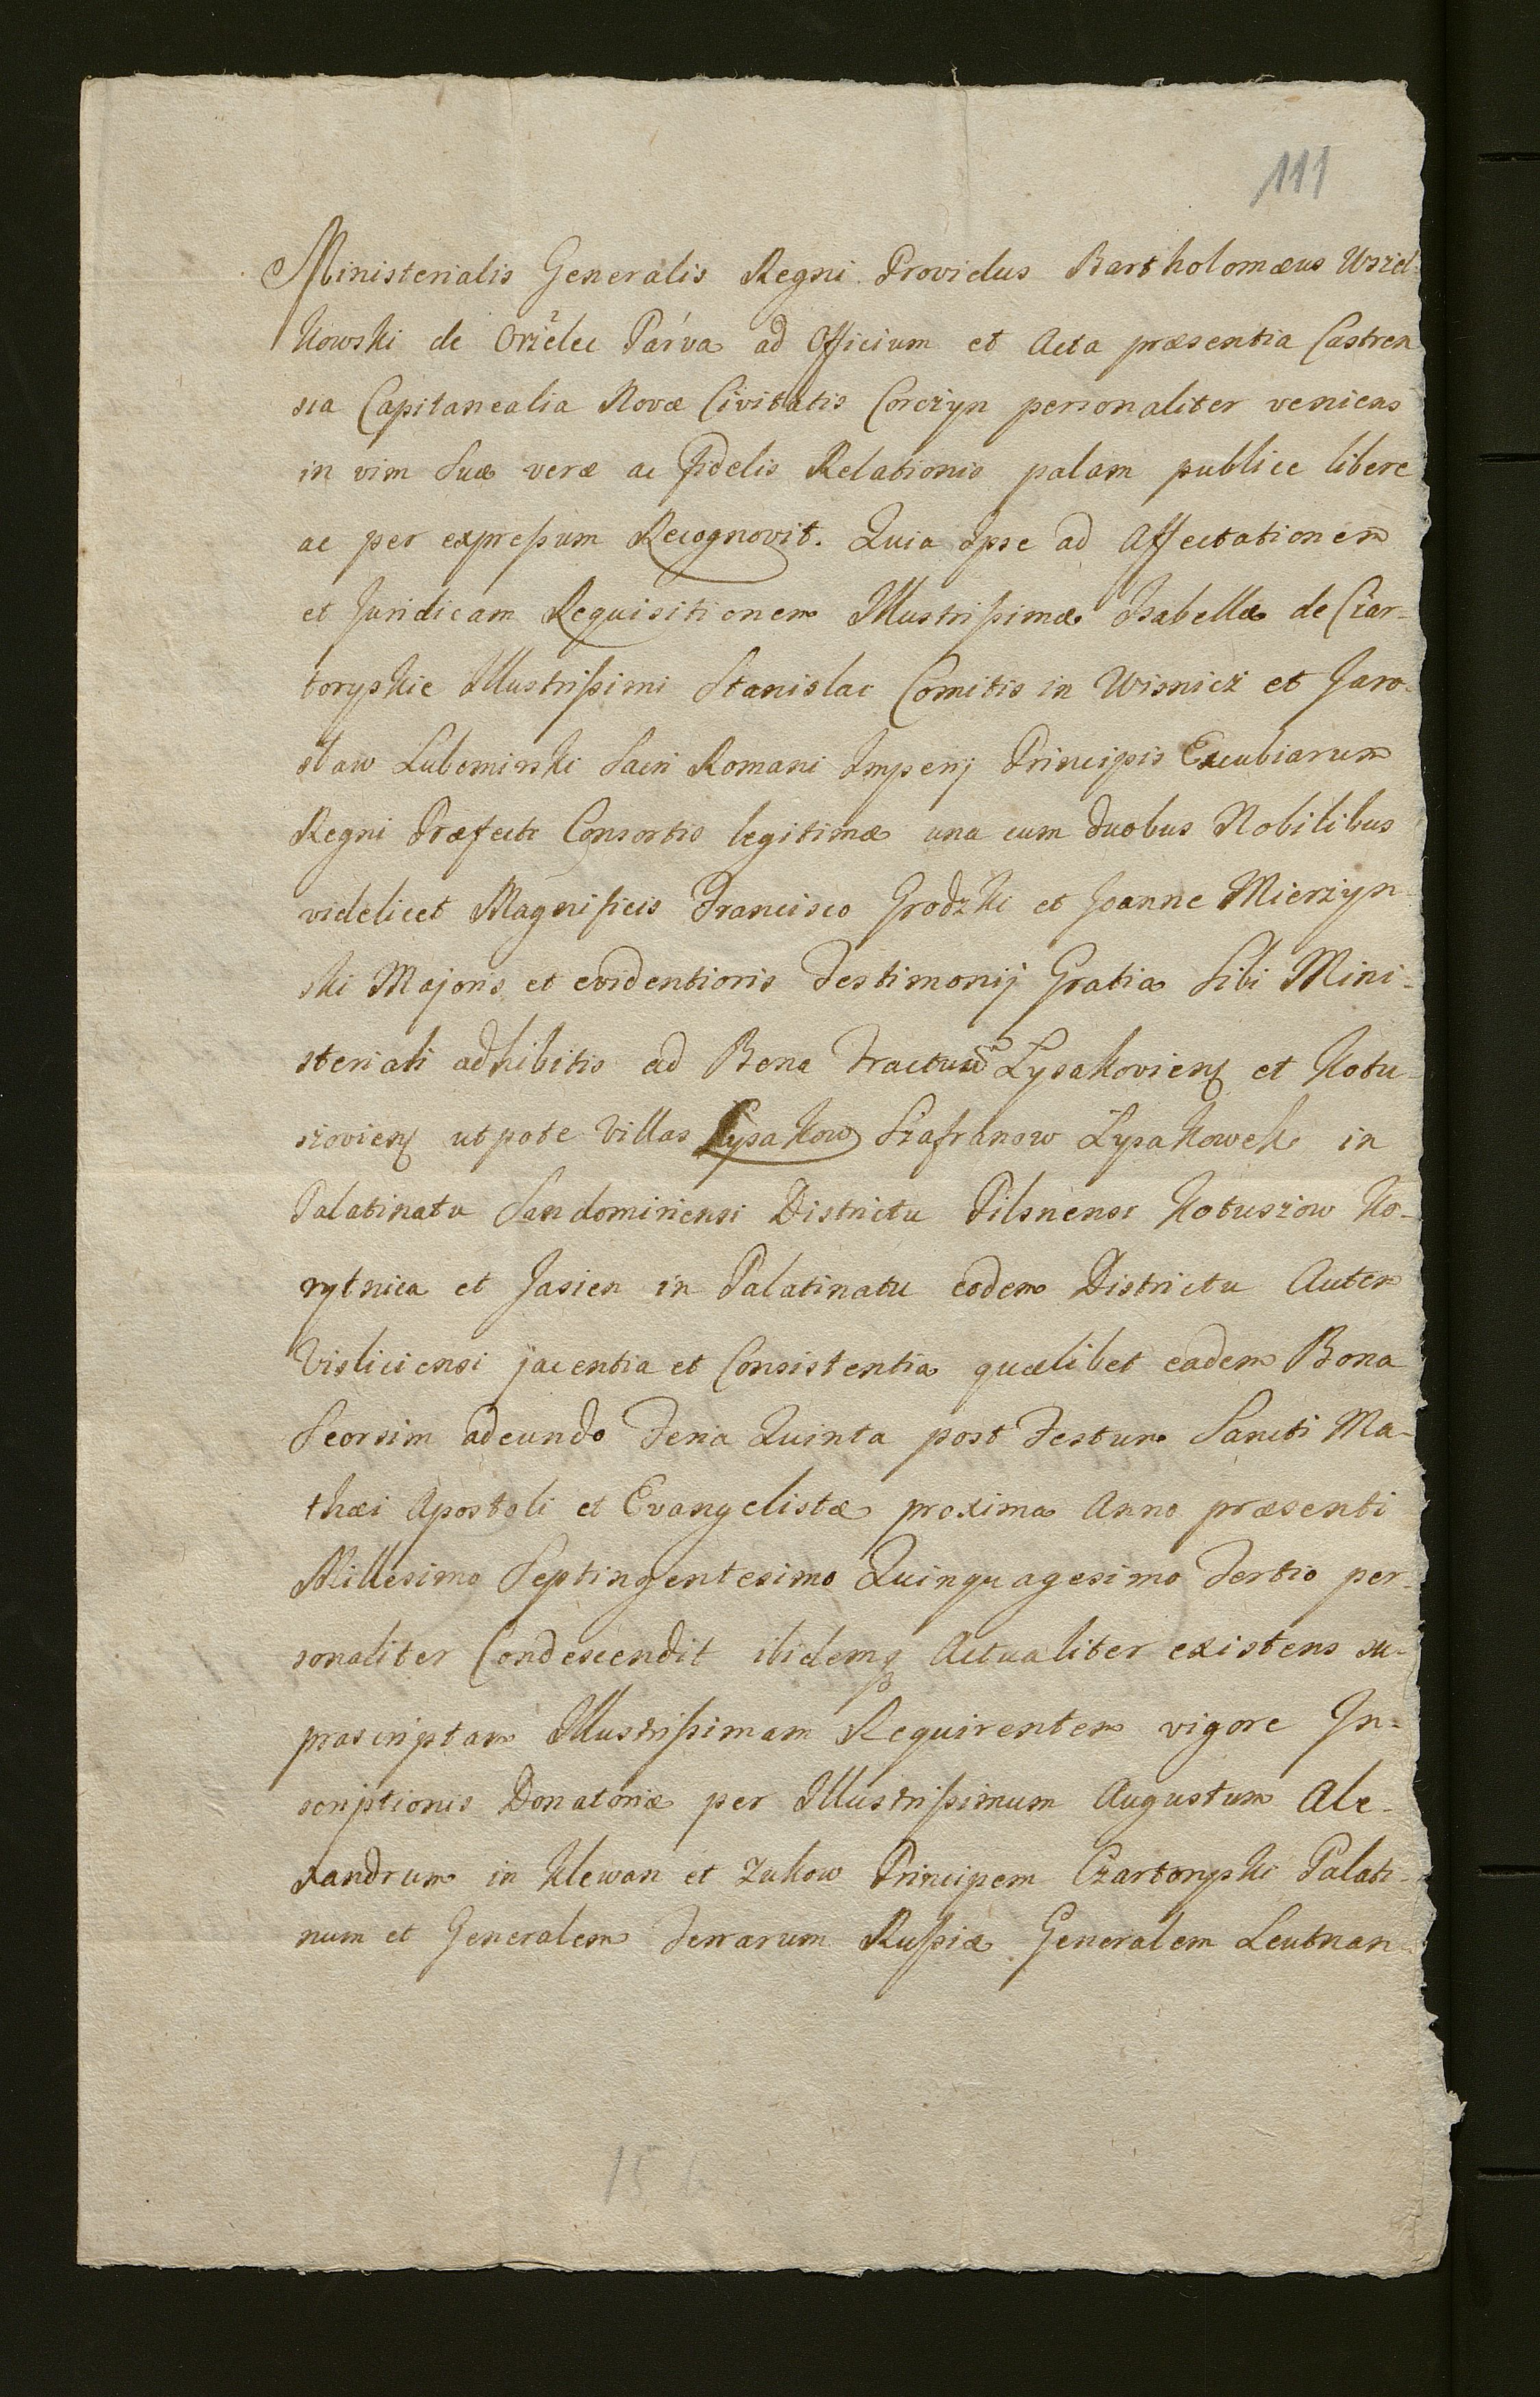 111
Ministerialis Generalis Regni Providus Bartholomæus Wsziel-
kowski de Orzelec Parva ad Officium et Acta præsentia Castren
sia Capitanealia Novæ Civitatis Corczyn personaliter veniens
in vim Suæ veræ ac fidelis Relationis palam publice libere
ac per expreßum Recognovit. Quia Ipse ad Affectationem
et Juridicam Requisitionem Illustrißimæ Isabellæ de Czar-
toryßkie Illustrißimi Stanislai Comitis in Wisnicz et Jaro-
slaw Lubomirski Sacri Romani Imperij Principis Excubiarum
Regni Præfecti Consortis legitimæ una cum duobus Nobilibus
videlicet Magnificis Francisco Grodzki et Joanne Mierzyn
ski Majoris et evidentioris Testimonij Gratia Sibi Mini-
steriali adhibitis ad Bona Tractuum Lysakovien et Kotu-
szovien utpote Villas Lysakow Szafranow Lysakowek in
Palatinatu Sandomiriensi Districtu Pilsnensi Kotuszow Ko-
rytnica et Jasien in Palatinatu eodem Districtu Autem
Visliciensi jacentia et Consistentia quælibet eadem Bona
Seorsim adeundo Feria Quinta post Festum Sancti Ma-
thæi Apostoli et Evangelistæ proxima Anno præsenti
Millesimo Septingentesimo Quinquagesimo Tertio per-
sonaliter Condescendit ibidemq Actualiter existens su-
prascriptam Illustrißimam Requirentem vigore In-
scriptionis Donatoriæ per Illustrißimum Augustum Ale-
xandrum in Klewan et Zukow Principem Czartoryßki Palati-
num et Generalem Terrarum Rußiæ Generalem Leutnan